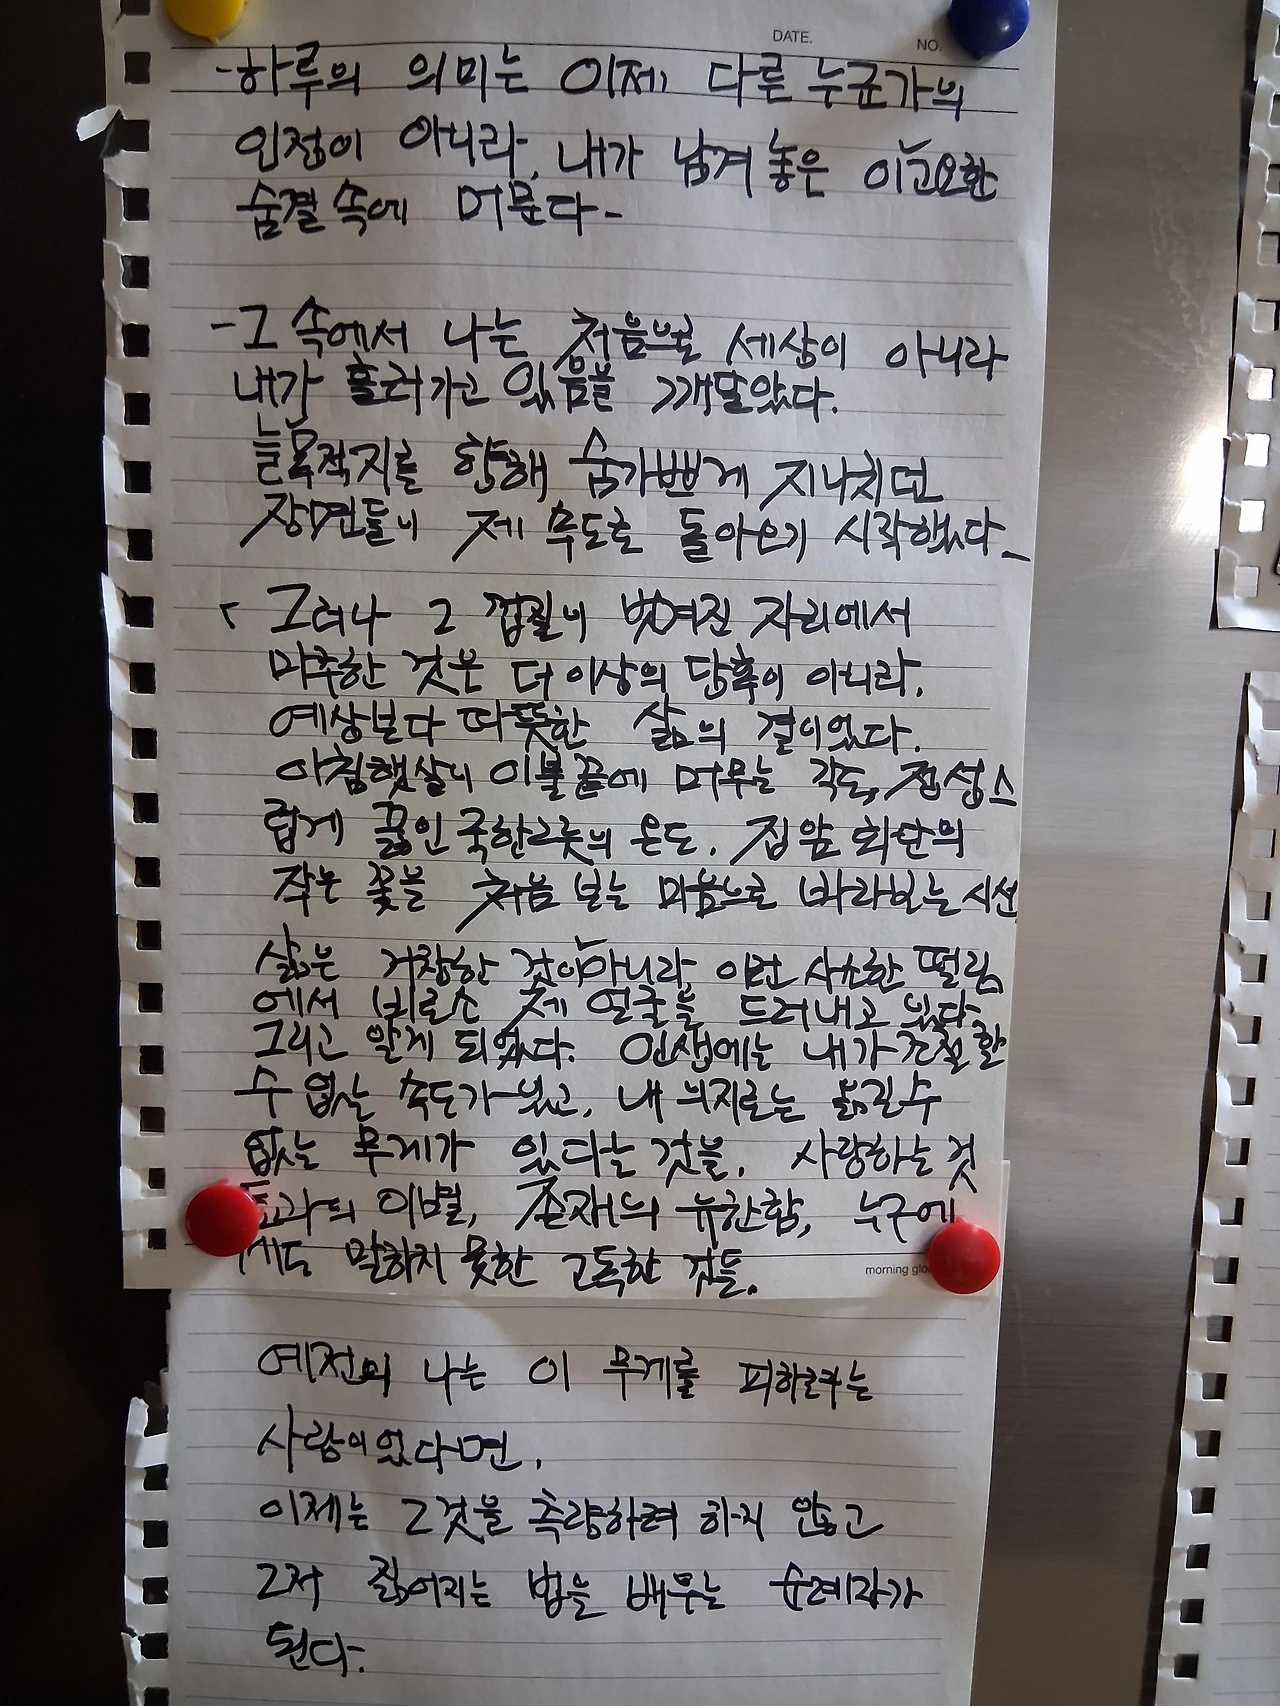 DATE.
NO.
-하루의 의미는 이제 다른 누군가의
인정이 아니라, 내가 남겨 놓은 이 고요한
숨결 속에 머문다-
-그 속에서 나는 처음으로 세상이 아니라
내가 흘러가고 있음을 깨달았다.
늘 목적지를 향해 숨가쁘게 지나치던
장면들이 제 속도로 돌아오기 시작했다-
「그러나 그 껍질이 벗겨진 자리에서
마주한 것은 더 이상의 남루이 아니라,
예상보다 따뜻한 삶의 결이었다.
아침햇살이 이불 끝에 머무는 각도, 정성스
럽게 끓인 국 한그릇의 온도. 집 앞 화단의
작은 꽃을 처음 보는 마음으로 바라보는 시선
삶은 거창한 것이 아니라, 이런 사소한 떨림
에서 비로소 제 얼굴을 드러내고 있다.
그리고 알게 되었다. 인생에는 내가 조절할
수 없는 속도가 있고, 내 의지로는 옮길 수
없는 무게가 있다는 것을. 사랑하는 것
들과의 이별, 존재의 유한함, 누구에
게도 말하지 못한 고독한 것들.
morning glo
예전의 나는 이 무게를 피하려는
사람이었다면,
이제는 그것을 측량하려 하지 않고
그저 짊어지는 법을 배우는 순례자가
된다.